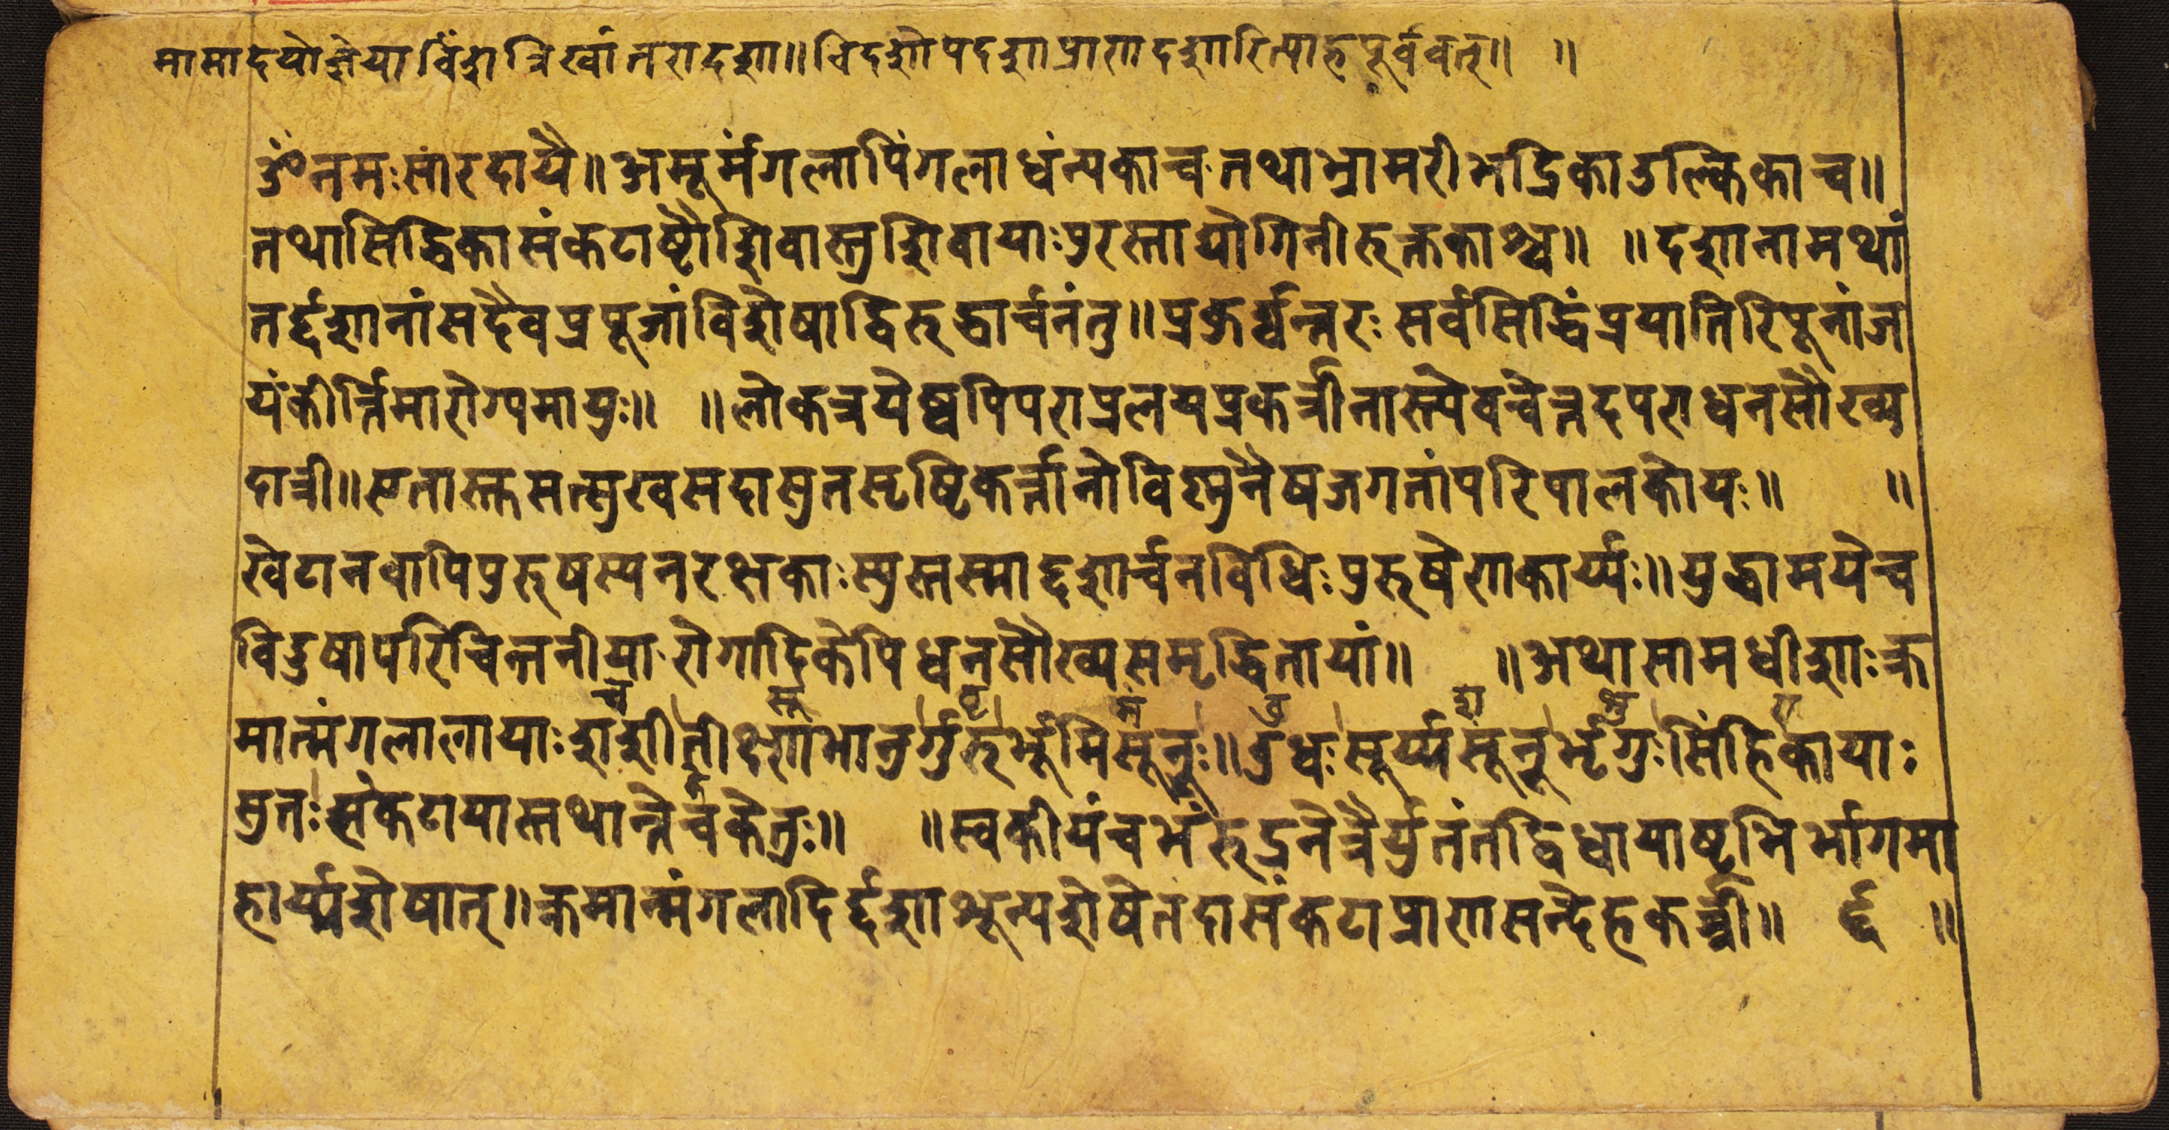 मासादयोज्ञेयाविंशत्रिखांतरादशा॥विदशोपदशाप्राणदशारित्याहपूर्ववत्॥ ॥
ॐनमःसारदायै॥अमूर्मंगलापिंगलाधंन्यकाचतथाभ्रामरीभद्रिकाउल्किकाच॥
तथासिद्धिकासंकटाष्टौशिवास्तुशिवायाःपुरस्तायोगिनीरुक्तकाश्च॥ ॥दशानामथां
तर्द्दशानांसदैवप्रपूजांविशेषाद्विरुद्धार्चनंतु॥प्रकुर्वन्नरःसर्वसिद्धिंप्रयातिरिपूनांज
यंकीर्त्तिमारोग्यमायुः॥ ॥लोकत्रयेष्वपिपराप्रलयप्रकर्त्रीनास्त्येवचेन्नदपराधनसौख्य
दात्री॥एतास्तसत्सुखसदासुतसृष्टिकर्त्तानोविष्णुनैषजगतांपरिपालकोयः॥ ॥
खेटानवापिपुरुषस्यनरक्षकाःस्युस्तस्माद्दशार्चनविधिःपुरुषेणकार्य्यः॥युद्धामयेच
विदुषापरिचिन्तनीयारोगादिकेपिधनसौख्यसमृद्धितायां॥ ॥अथासामधीशाःक्र
मान्मंगलालायाःशशीतीक्ष्णभानुर्गुरुर्भूमिसूनुः॥बुधःसूर्य्यसूनूर्भृगुःसिंहिकायाः
सुतःसंकटायास्तथान्तेचकेतुः॥ ॥स्वकीयंचभंरुद्रनेत्रैर्युतंतद्विधायाष्टभिर्भागमा
हार्य्यशेषात्॥क्रमान्मंगलादिर्द्दशाभून्यशेषेतदासंकटाप्राणसन्देहकर्त्री॥ ॥